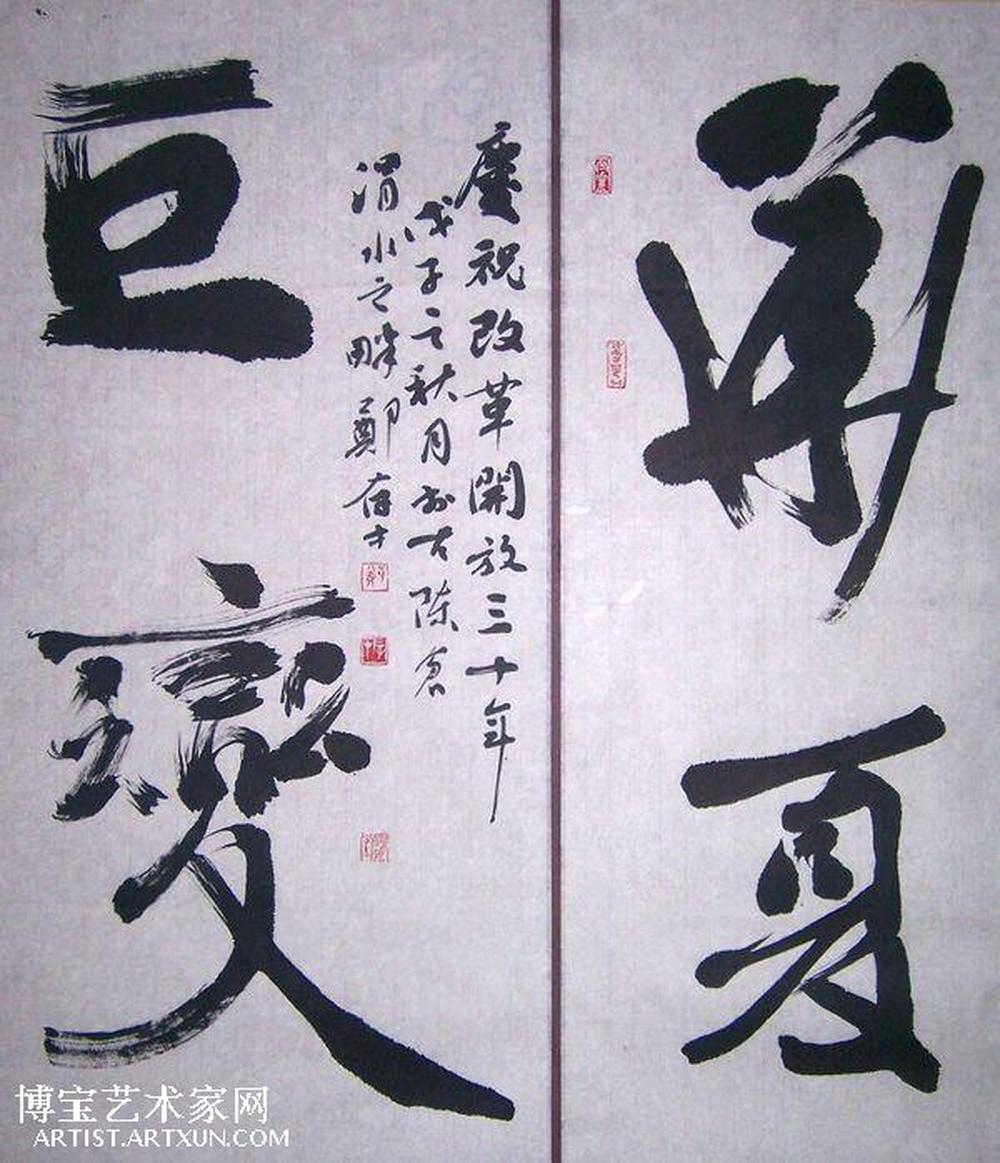 華夏
巨變
慶祝改革開放三十年
戊子之秋月於古陳倉
渭水之畔鄭存才
博宝艺术家网
ARTIST.ARTXUN.COM